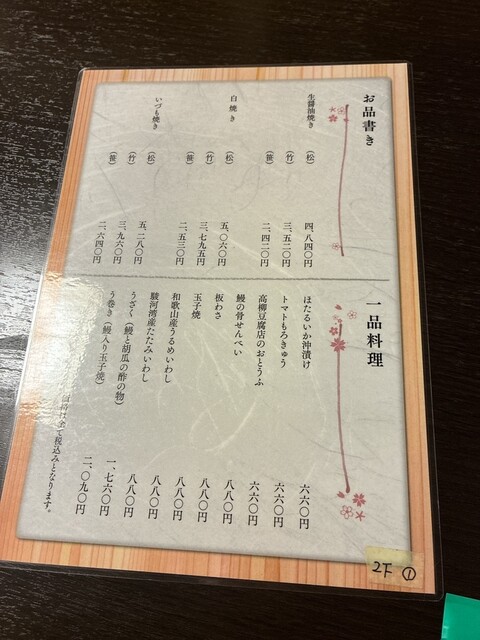 お品書き
生醤油焼き
（松） 四、八四〇円
（竹） 三、五二〇円
（笹） 二、四二〇円
白焼き
（松） 五、〇六〇円
（竹） 三、七九五円
（笹） 二、五三〇円
いづも焼き
（松） 五、二八〇円
（竹） 三、九六〇円
（笹） 二、六四〇円
一品料理
ほたるいか沖漬け 六六〇円
トマトもろきゅう 六六〇円
高柳豆腐店のおとうふ 六六〇円
鰻の骨せんべい 八八〇円
板わさ 八八〇円
玉子焼 八八〇円
和歌山産うるめいわし 八八〇円
駿河湾産たたみいわし 八八〇円
うざく（鰻と胡瓜の酢の物） 一、七六〇円
う巻き（鰻入り玉子焼） 二、〇九〇円
価格は全て税込みとなります。
2F ①